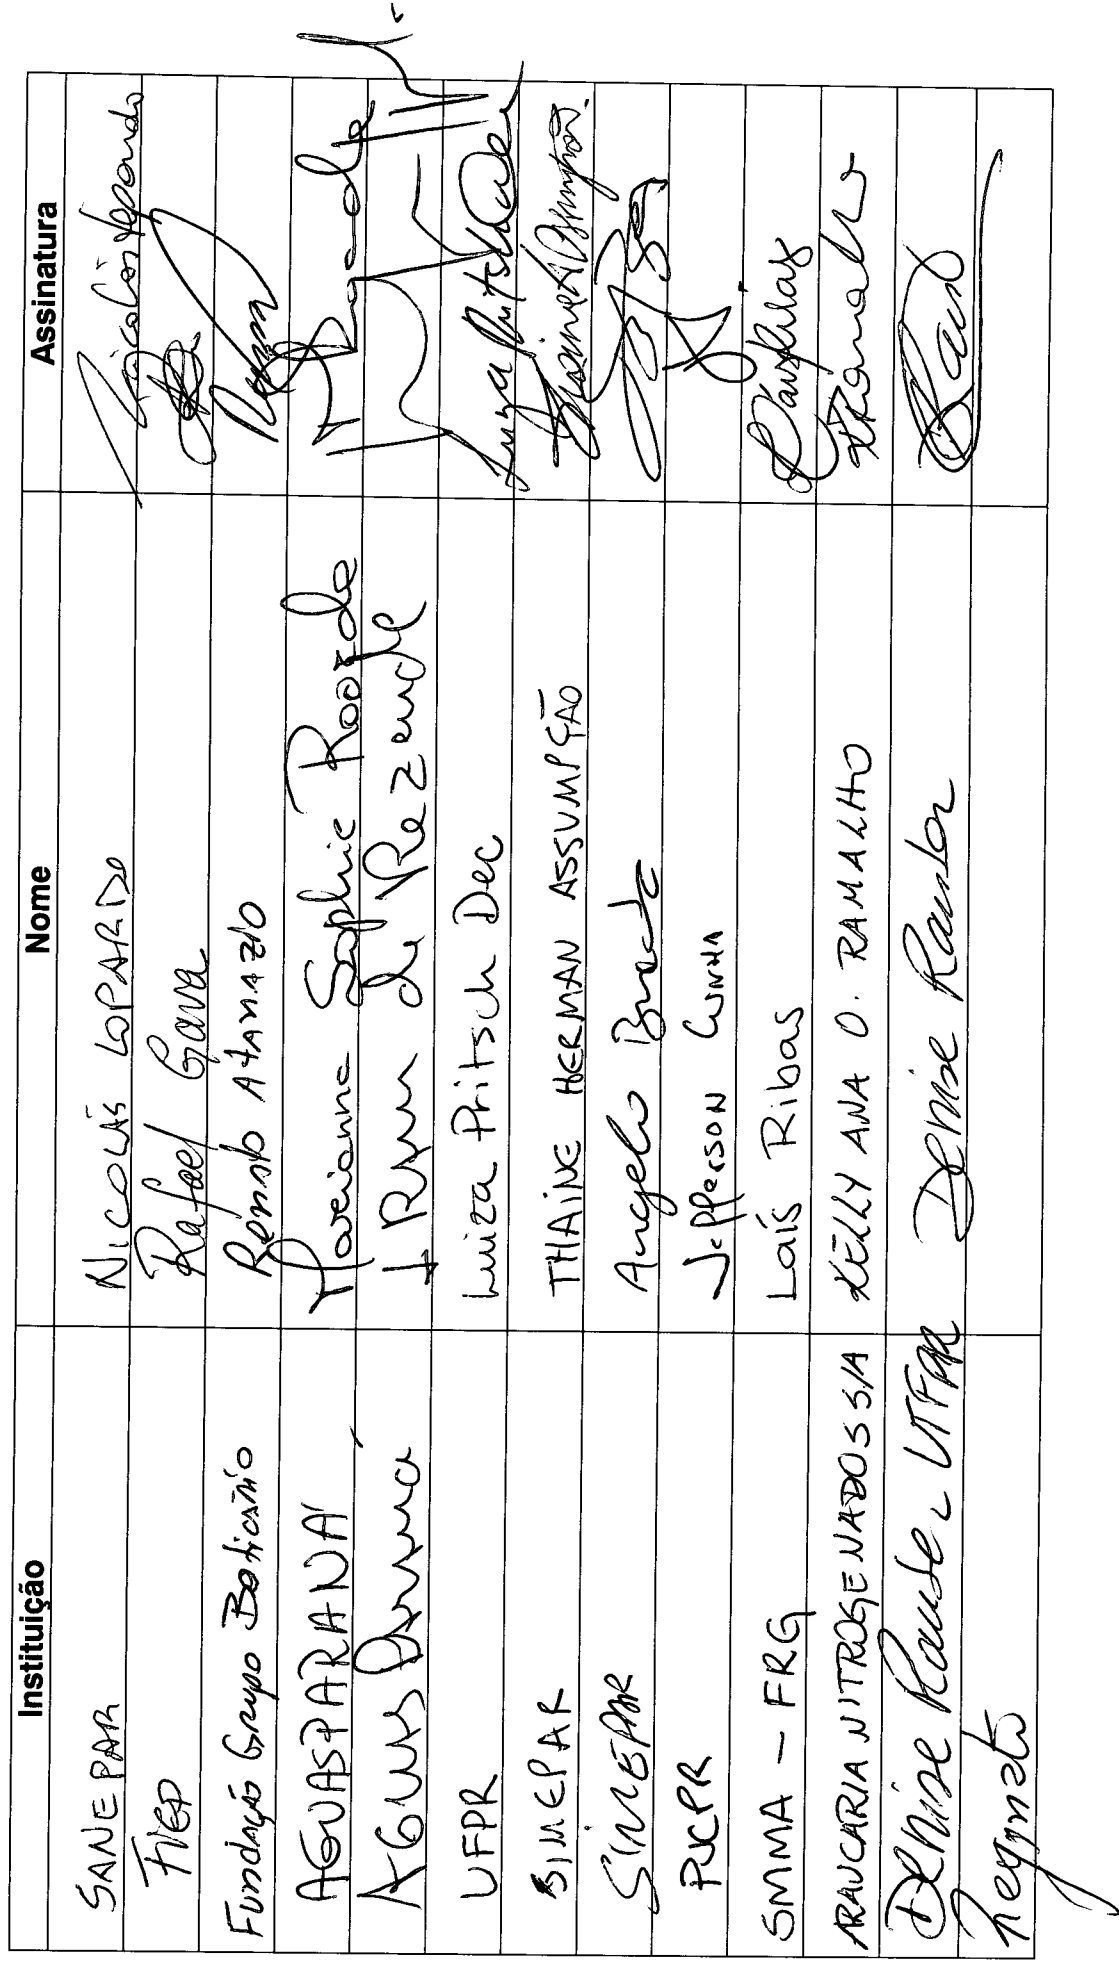 Instituição Nome Assinatura
SANEPAR NICOLÁS LOPARDO Nicolás Lopardo
FIEP Rafael Gava
Fundação Grupo Boticário Renato Atanazio
AGUASPARANÁ Marianna Sophie Roorda
AGUAS Paraná de Rezende
UFPR Luiza Pritsch Dec Luiza Pritsch Dec
SIMEPAR THAINE HERMAN ASSUMPÇÃO Thaine H Assumpção.
SIMEPAR Angelo
PUCPR Jefferson CUNHA
SMMA - FRG Laís Ribas
ARAUCARIA NITROGENADOS SA KELLY ANA O. RAMALHO Ramalho
Denise Rauber, UTFPR Denise Rauber